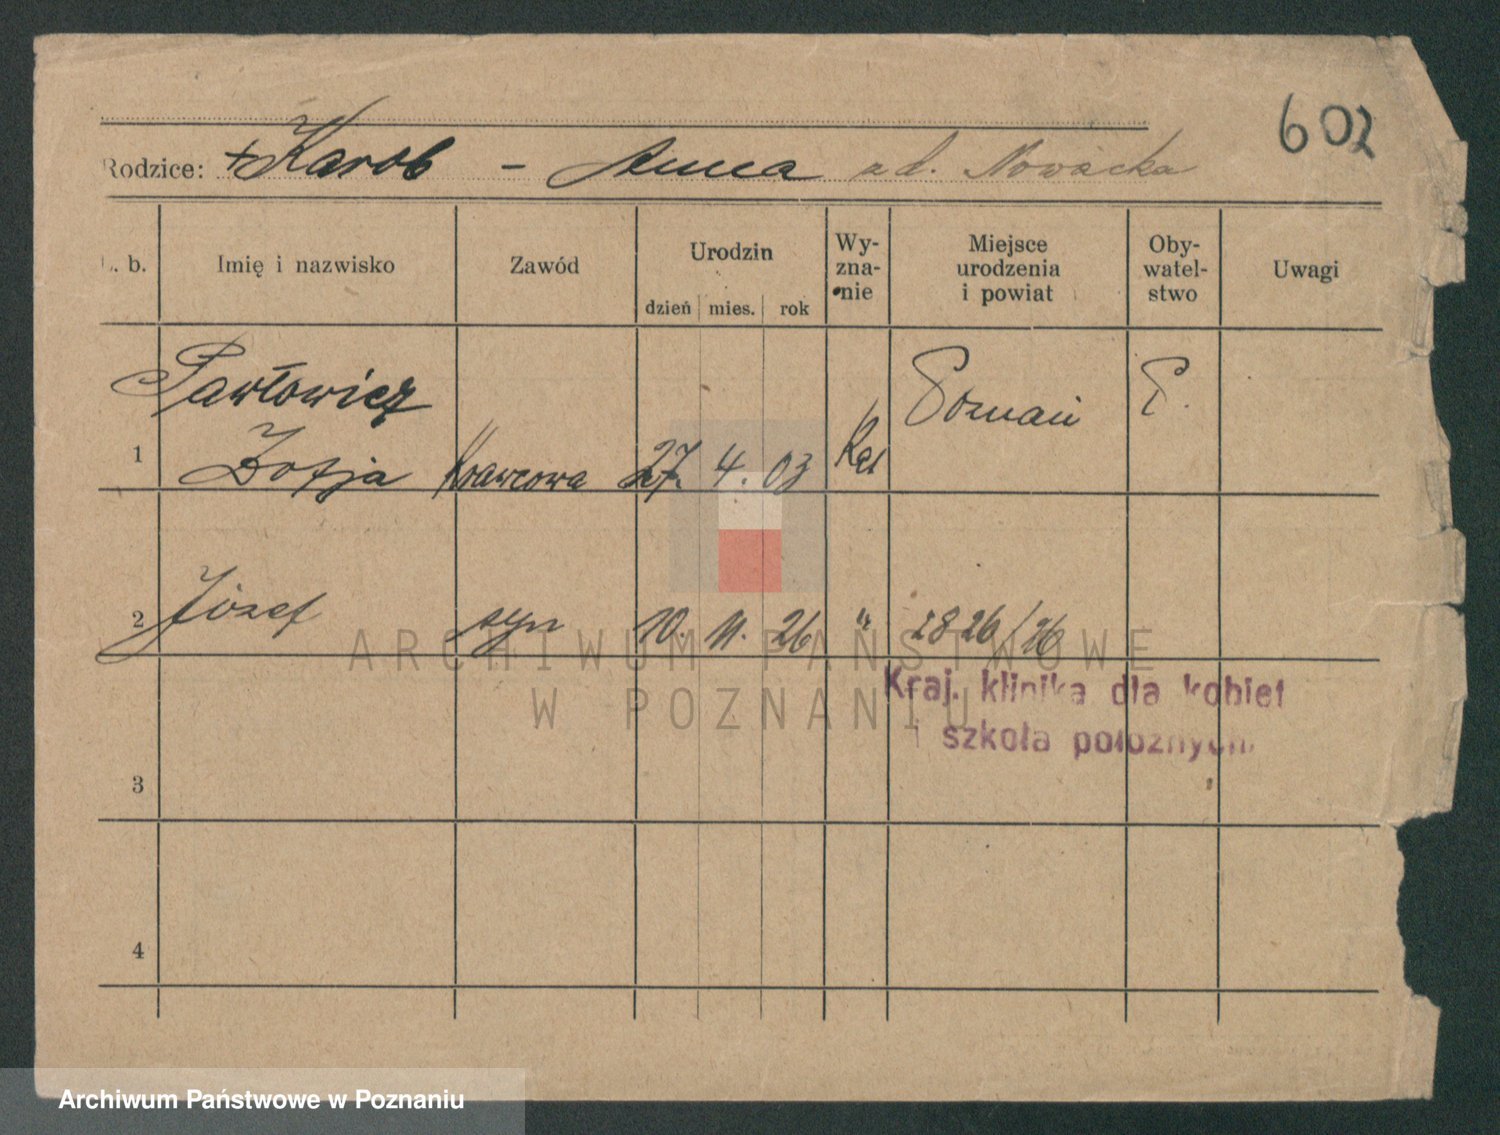 602
Rodzice: + Karol - Anna zd. Nowacka
L. b. Imię i nazwisko Zawód Urodzin dzień mies. rok Wy-zna-nie Miejsce urodzenia i powiat Oby-watel-stwo Uwagi
Pawłowicz Poznań P.
1 Zofja Krawcowa 27. 4. 03 Kat
2 Józef syn 10. 11. 26 " 2826/26
Kraj. klinika dla kobiet
i szkoła położnych.
3
4
ARCHIWUM PAŃSTWOWE
W POZNANIU
Archiwum Państwowe w Poznaniu